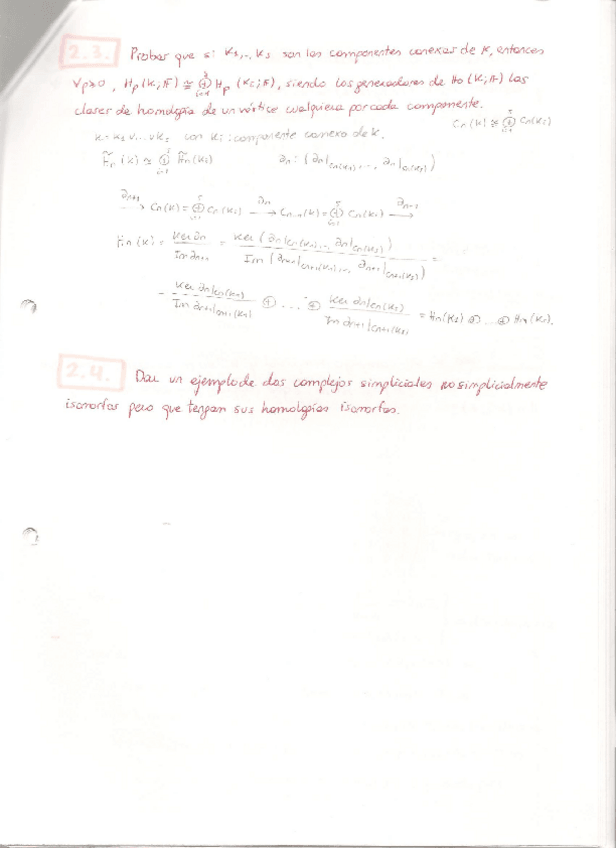 2.3. Probar que si K₁,..., Kₛ son las componentes conexas de K, entonces
∀p≥0, Hp(K;F) ≅ ⊕ˢᵢ₌₁ Hp(Kᵢ;F), siendo los generadores de H₀(K;F) las
clases de homología de un vértice cualquiera por cada componente.
Cn(K) ≅ ⊕ˢᵢ₌₁ Cn(Kᵢ)
K = K₁ ∪ ... ∪ Kₛ con Kᵢ : componente conexo de K.
H̃n(K) ≅ ⊕ˢᵢ₌₁ H̃n(Kᵢ) ∂n : (∂n|Cn(K₁), ..., ∂n|Cn(Kₛ))
∂n+1 → Cn(K) = ⊕ˢᵢ₌₁ Cn(Kᵢ) ∂n → Cn-1(K) = ⊕ˢᵢ₌₁ Cn(Kᵢ) ∂n-1 →
Hn(K) = Ker ∂n / Im ∂n+1 = Ker (∂n|Cn(K₁), ..., ∂n|Cn(Kₛ)) / Im (∂n+1|Cn+1(K₁), ..., ∂n+1|Cn+1(Kₛ)) =
= Ker ∂n|Cn(K₁) / Im ∂n+1|Cn+1(K₁) ⊕ ... ⊕ Ker ∂n|Cn(Kₛ) / Im ∂n+1|Cn+1(Kₛ) = Hn(K₁) ⊕ ... ⊕ Hn(Kₛ).
2.4. Dar un ejemplo de dos complejos simpliciales no simplicialmente
isomorfos pero que tengan sus homologías isomorfas.